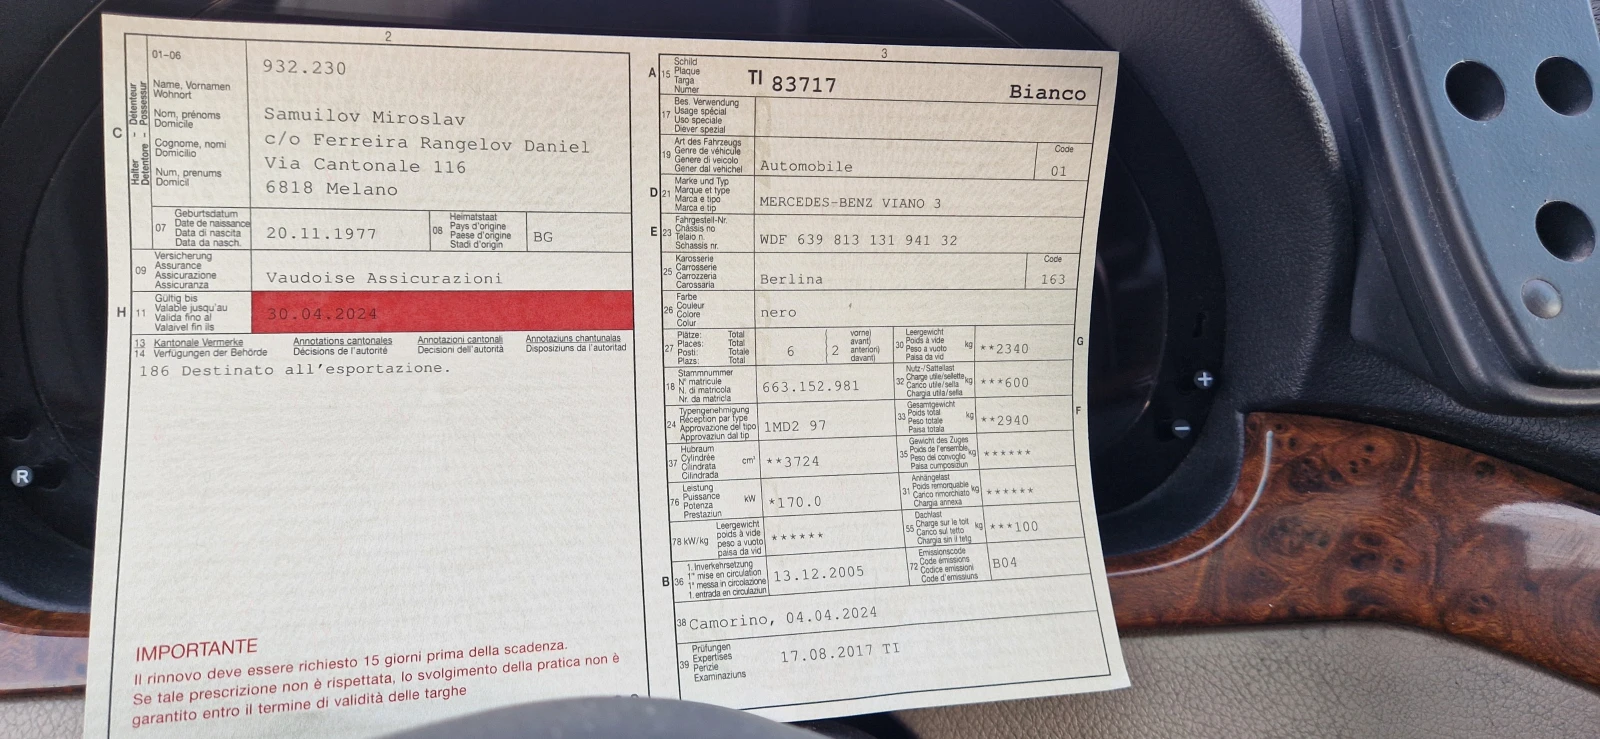 2
01-06
932.230
C
Halter - Détenteur
Detentore - Possessur
Name, Vornamen
Wohnort
Nom, prénoms
Domicile
Cognome, nomi
Domicilio
Num, prenums
Domicil
Samuilov Miroslav
c/o Ferreira Rangelov Daniel
Via Cantonale 116
6818 Melano
07
Geburtsdatum
Date de naissance
Data di nascita
Data da nasch.
20.11.1977
08
Heimatstaat
Pays d'origine
Paese d'origine
Stadi d'origin
BG
09
Versicherung
Assurance
Assicurazione
Assicuranza
Vaudoise Assicurazioni
H
11
Gültig bis
Valable jusqu'au
Valida fino al
Valaivel fin ils
30.04.2024
13 Kantonale Vermerke Annotations cantonales Annotazioni cantonali Annotaziuns chantunalas
14 Verfügungen der Behörde Décisions de l'autorité Decisioni dell'autorità Disposiziuns da l'autoritad
186 Destinato all'esportazione.
IMPORTANTE
Il rinnovo deve essere richiesto 15 giorni prima della scadenza.
Se tale prescrizione non è rispettata, lo svolgimento della pratica non è
garantito entro il termine di validità delle targhe
3
A
15
Schild
Plaque
Targa
Numer
TI 83717 Bianco
17
Bes. Verwendung
Usage spécial
Uso speciale
Diever spezial
19
Art des Fahrzeugs
Genre de véhicule
Genere di veicolo
Gener dal vehichel
Automobile
Code
01
D
21
Marke und Typ
Marque et type
Marca e tipo
Marca e tip
MERCEDES-BENZ VIANO 3
E
23
Fahrgestell-Nr.
Châssis no
Telaio n.
Schassis nr.
WDF 639 813 131 941 32
25
Karosserie
Carrosserie
Carrozzeria
Carossaria
Berlina
Code
163
26
Farbe
Couleur
Colore
Colur
nero
27
Plätze: Total
Places: Total
Posti: Totale
Plazs: Total
6
2
vorne)
avant)
anteriori)
davant)
30
Leergewicht
Poids à vide
Peso a vuoto
Paisa da vid
kg
**2340
G
18
Stammnummer
N° matricule
N. di matricola
Nr. da matricla
663.152.981
32
Nutz-/Sattellast
Charge utile/sellette
Carico utile/sella
Chargia utila/sella
kg
***600
24
Typengenehmigung
Réception par type
Approvazione del tipo
Approvaziun dal tip
1MD2 97
33
Gesamtgewicht
Poids total
Peso totale
Paisa totala
kg
**2940
F
37
Hubraum
Cylindrée
Cilindrata
Cilindrada
cm³
**3724
35
Gewicht des Zuges
Poids de l'ensemble
Peso del convoglio
Paisa cumposiziun
kg
******
76
Leistung
Puissance
Potenza
Prestaziun
kW
*170.0
31
Anhängelast
Poids remorquable
Carico rimorchiato
Chargia annexa
kg
******
78 kW/kg
Leergewicht
poids à vide
peso a vuoto
paisa da vid
******
55
Dachlast
Charge sur le toit
Carico sul tetto
Chargia sin il tetg
kg
***100
B
36
1. Inverkehrsetzung
1re mise en circulation
1a messa in circolazione
1. entrada en circulaziun
13.12.2005
72
Emissionscode
Code émissions
Codice emissioni
Code d'emissiuns
B04
38 Camorino, 04.04.2024
39
Prüfungen
Expertises
Perizie
Examinaziuns
17.08.2017 TI
R
+
−